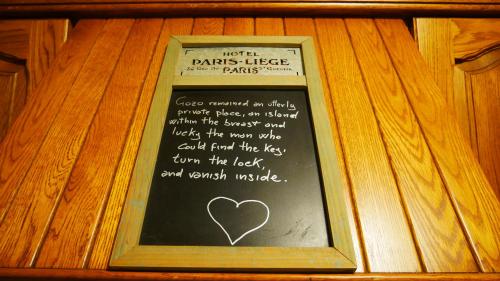 HOTEL
PARIS-LIEGE
PARIS
Gozo remained an utterly
private place, an island
within the breast and
lucky the man who
could find the key,
turn the lock,
and vanish inside.